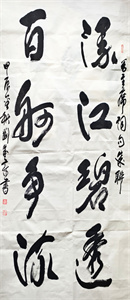 毛主席词句集联
漫江碧透
百舸争流
甲辰年秋刘